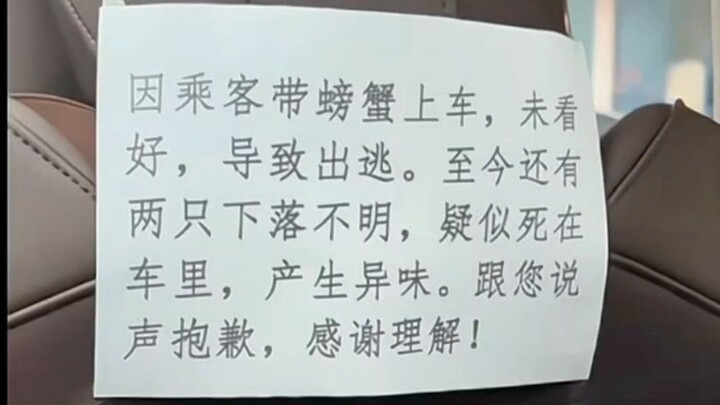 因乘客带螃蟹上车，未看
好，导致出逃。至今还有
两只下落不明，疑似死在
车里，产生异味。跟您说
声抱歉，感谢理解！